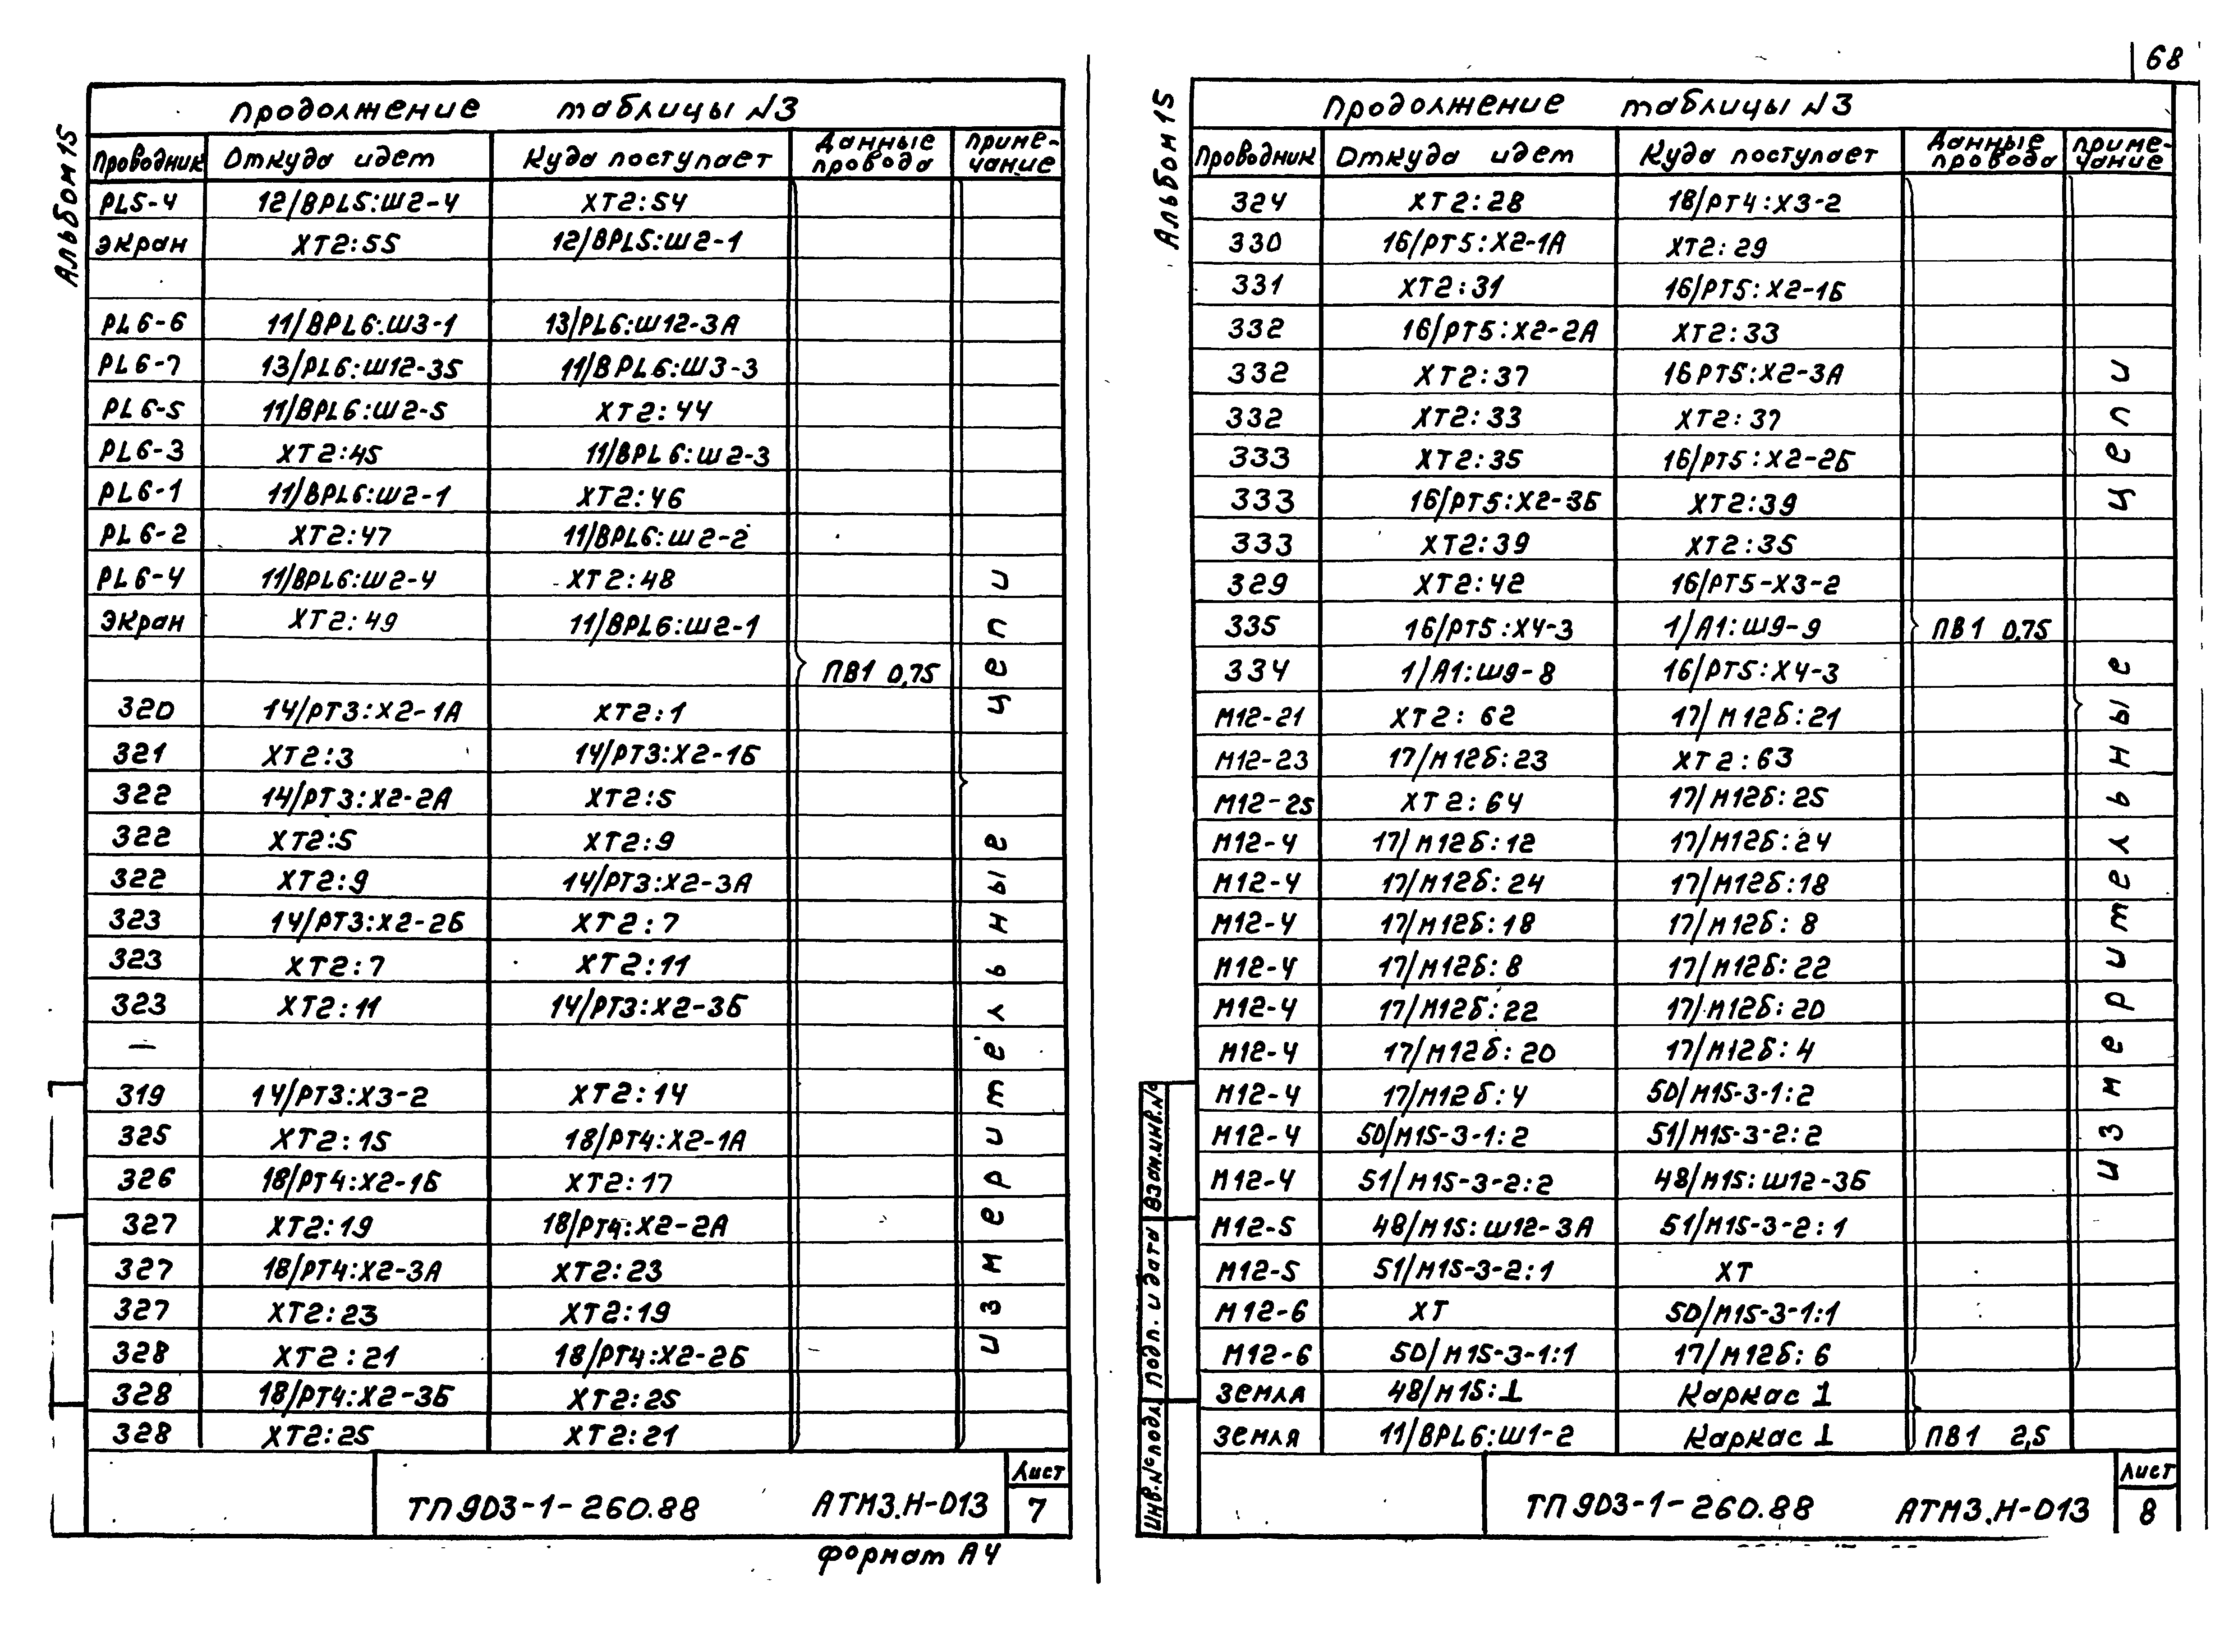 68
Альбом 15
Продолжение таблицы N3
Проводник Откуда идет Куда поступает Данные провода Приме-чание
PL5-4 12/BPL5:Ш2-4 XT2:54
экран XT2:55 12/BPL5:Ш2-1
PL6-6 11/BPL6:Ш3-1 13/PL6:Ш12-3А
PL6-7 13/PL6:Ш12-35 11/BPL6:Ш3-3
PL6-5 11/BPL6:Ш2-5 XT2:44
PL6-3 XT2:45 11/BPL6:Ш2-3
PL6-1 11/BPL6:Ш2-1 XT2:46
PL6-2 XT2:47 11/BPL6:Ш2-2
PL6-4 11/BPL6:Ш2-4 XT2:48
экран XT2:49 11/BPL6:Ш2-1
ПВ1 0,75
320 14/РТ3:Х2-1А XT2:1
321 XT2:3 14/РТ3:Х2-1Б
322 14/РТ3:Х2-2А XT2:5
322 XT2:5 XT2:9
322 XT2:9 14/РТ3:Х2-3А
323 14/РТ3:Х2-2Б XT2:7
323 XT2:7 XT2:11
323 XT2:11 14/РТ3:Х2-3Б
—
319 14/РТ3:Х3-2 XT2:14
325 XT2:15 18/РТ4:Х2-1А
326 18/РТ4:Х2-1Б XT2:17
327 XT2:19 18/РТ4:Х2-2А
327 18/РТ4:Х2-3А XT2:23
327 XT2:23 XT2:19
328 XT2:21 18/РТ4:Х2-2Б
328 18/РТ4:Х2-3Б XT2:25
328 XT2:25 XT2:21
измерительные цепи
ТП 903-1-260.88 АТМ3.Н-013
Лист
7
формат А4
Альбом 15
Продолжение таблицы N3
Проводник Откуда идет Куда поступает Данные провода Приме-чание
324 XT2:28 18/РТ4:Х3-2
330 16/РТ5:Х2-1А XT2:29
331 XT2:31 16/РТ5:Х2-1Б
332 16/РТ5:Х2-2А XT2:33
332 XT2:37 16РТ5:Х2-3А
332 XT2:33 XT2:37
333 XT2:35 16/РТ5:Х2-2Б
333 16/РТ5:Х2-3Б XT2:39
333 XT2:39 XT2:35
329 XT2:42 16/РТ5-Х3-2
335 16/РТ5:Х4-3 1/А1:Ш9-9 ПВ1 0,75
334 1/А1:Ш9-8 16/РТ5:Х4-3
М12-21 XT2:62 17/М12б:21
М12-23 17/М12б:23 XT2:63
М12-25 XT2:64 17/М12б:25
М12-4 17/М12б:12 17/М12б:24
М12-4 17/М12б:24 17/М12б:18
М12-4 17/М12б:18 17/М12б:8
М12-4 17/М12б:8 17/М12б:22
М12-4 17/М12б:22 17/М12б:20
М12-4 17/М12б:20 17/М12б:4
М12-4 17/М12б:4 50/М15-3-1:2
М12-4 50/М15-3-1:2 51/М15-3-2:2
М12-4 51/М15-3-2:2 48/М15:Ш12-3Б
М12-5 48/М15:Ш12-3А 51/М15-3-2:1
М12-5 51/М15-3-2:1 XT
М12-6 XT 50/М15-3-1:1
М12-6 50/М15-3-1:1 17/М12б:6
земля 48/М15:⊥ Каркас ⊥
земля 11/BPL6:Ш1-2 Каркас ⊥ ПВ1 2,5
измерительные цепи
Взам.инв.№
Подп. и дата
Инв.№подл.
ТП 903-1-260.88 АТМ3.Н-013
Лист
8